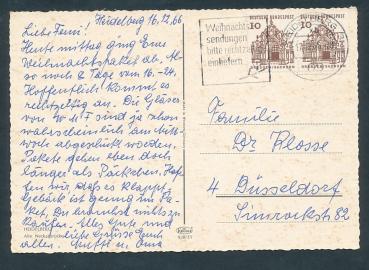 Heidelberg 16.12.66
Liebe Fenni!
Heute mittag ging Eure
Weihnachtspaket ab. Al-
so noch 8 Tage vom 16.-24.
Hoffentlich kommt es
rechtzeitig an. Die Gläser
von WMF sind ja schon
wahrscheinlich am Mitt-
woch abgeschickt worden.
Pakete gehen eben doch
länger als Päckchen. Hof-
fen wir daß es klappt.
Gebäck ist genug im Pa-
ket. Du brauchst nichts zu
kaufen. Alles Gute und
liebe Grüsse Euch
allen. Mutti u. Oma
HEIDELBERG
Alte Neckarbrücke
Weihnachts-
sendungen
bitte rechtzeitig
einliefern
10
DEUTSCHE BUNDESPOST
10
DEUTSCHE BUNDESPOST
Familie
Dr. Klosse
4 Düsseldorf
Simrockstr. 82